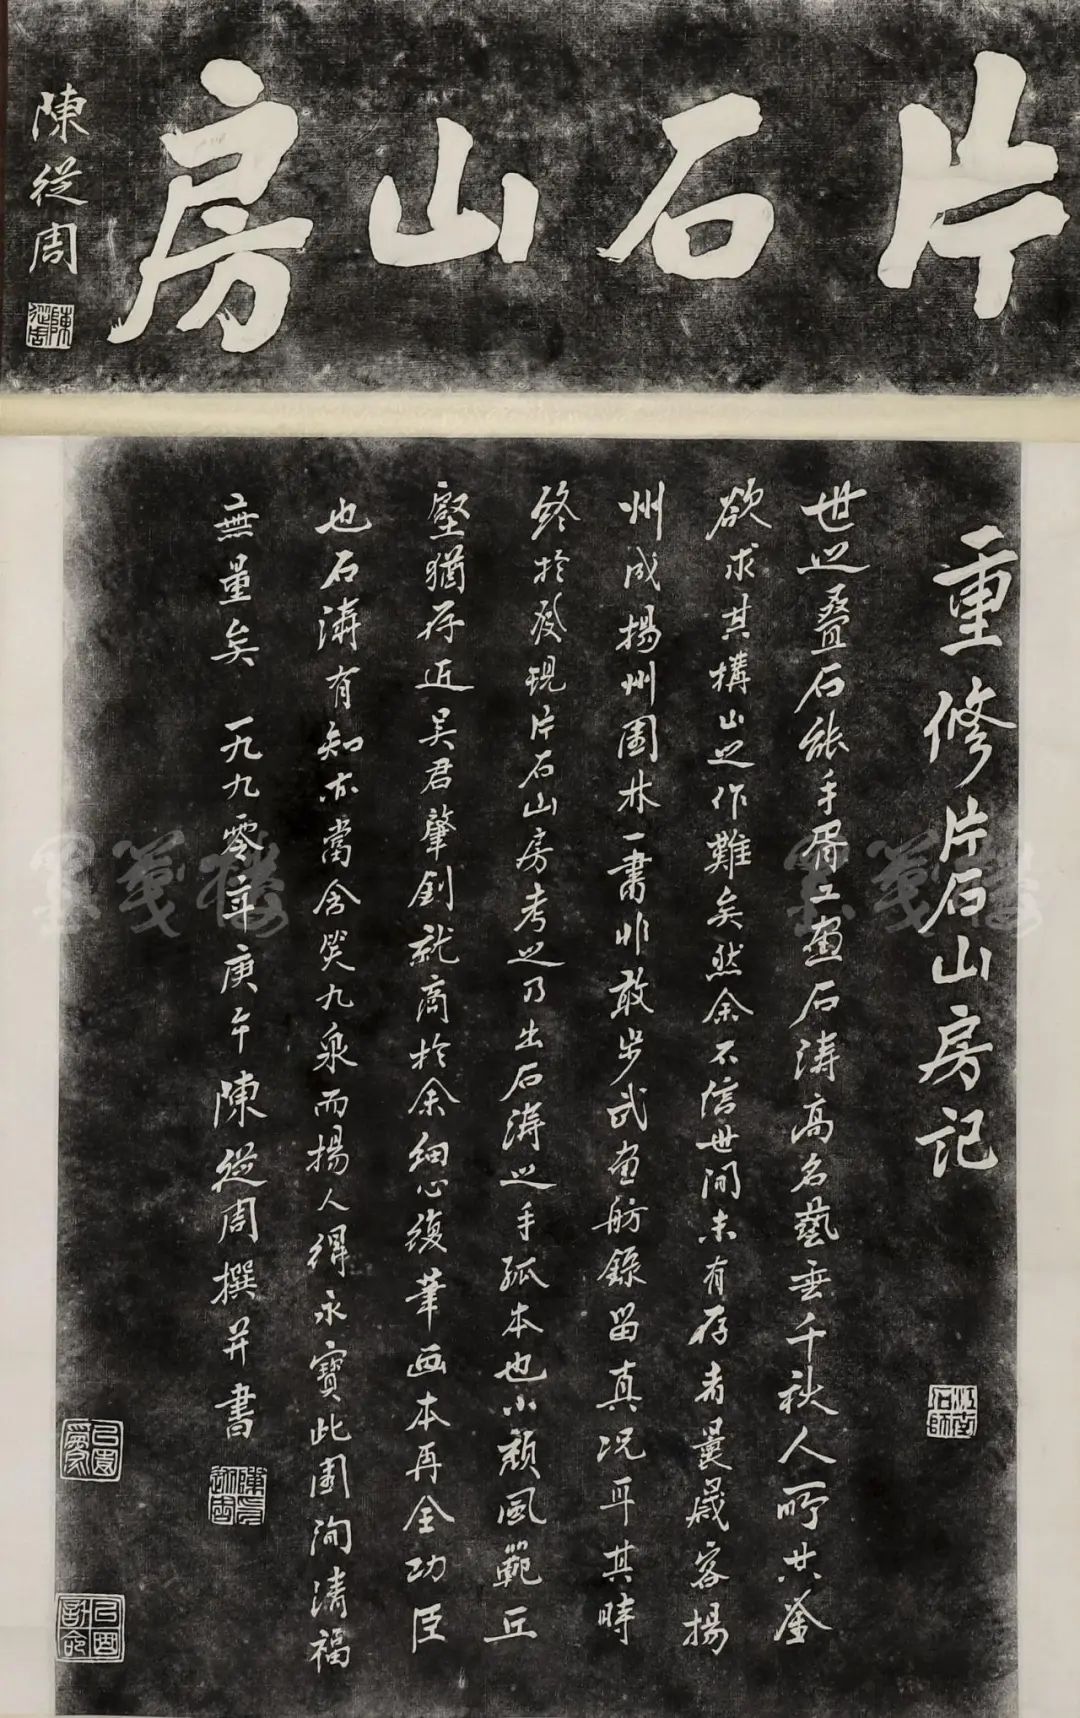 片石山房
陳從周
重修片石山房記
世之叠石能手胥工畫石濤高名藝垂千秋人所共鉴
欲求其構山之作難矣然余不信世間未有存者曩歲客揚
州成揚州園林一書非敢步武畫舫錄留真况耳其時
終於發現片石山房考之乃出石濤之手孤本也小頹風範丘
壑猶存近吴君肇釗就商於余細心復筆画本再全功臣
也石濤有知亦當含笑九泉而揚人得永寶此園洵清福
無量矣 一九九零年庚午陳從周撰并書
墨箋楼 墨箋楼